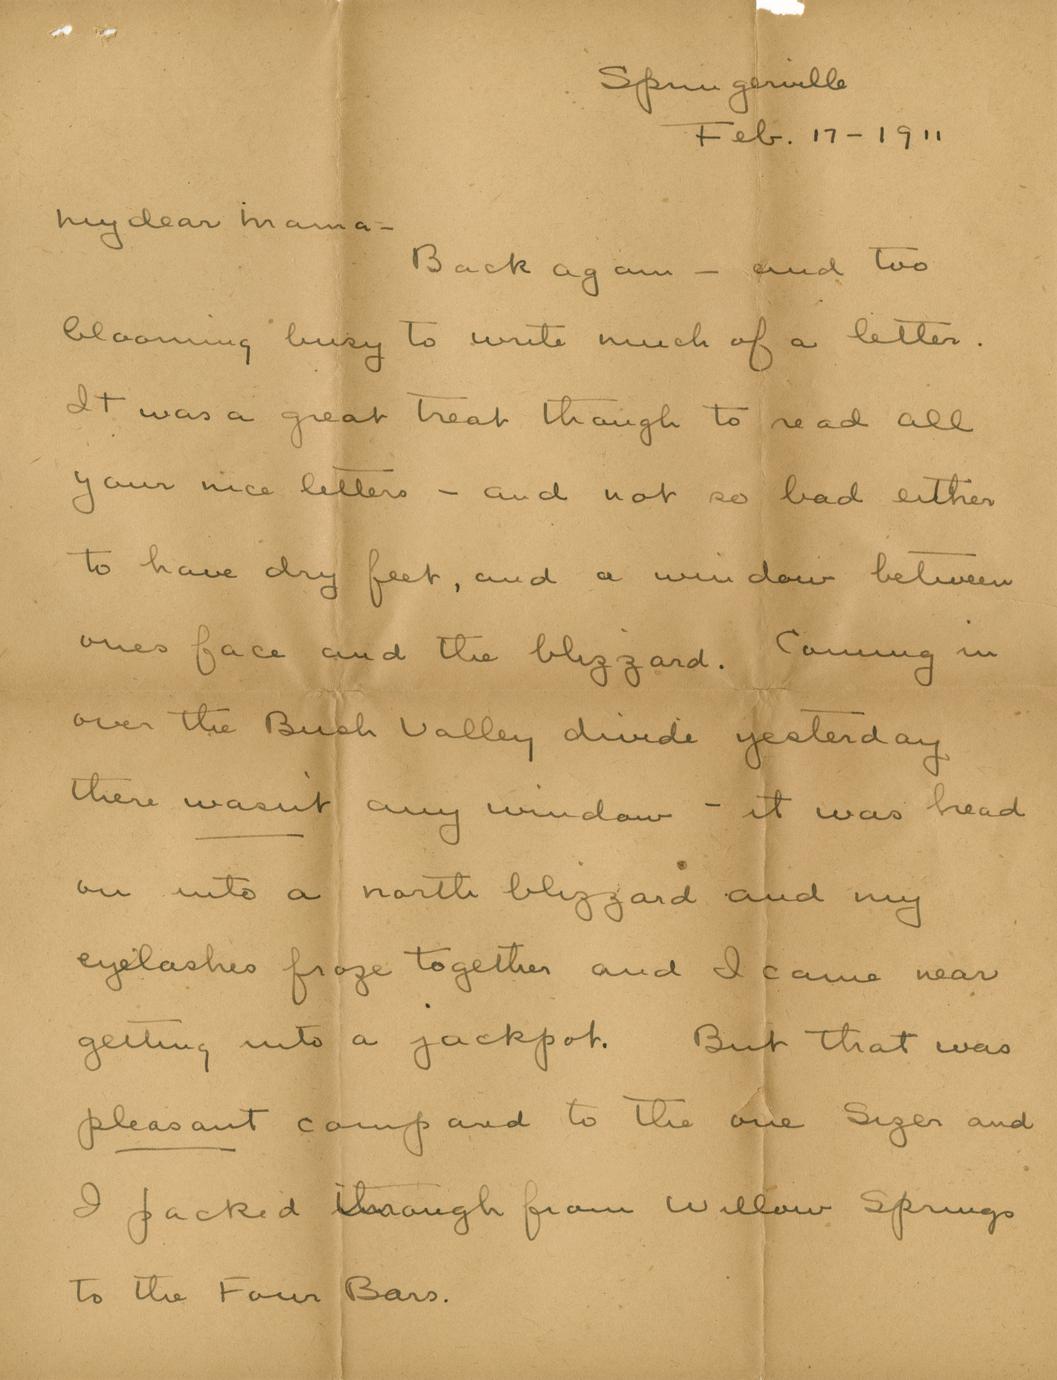 Springerville
Feb. 17-1911
My dear Mama-
Back again - and too
blooming busy to write much of a letter.
It was a great treat though to read all
your nice letters - and not so bad either
to have dry feet, and a window between
ones face and the blizzard. Coming in
over the Bush Valley divide yesterday
there wasn't any window - it was head
on into a north blizzard and my
eyelashes froze together and I came near
getting into a jackpot. But that was
pleasant compared to the one Sizer and
I packed through from Willow Springs
to the Four Bars.